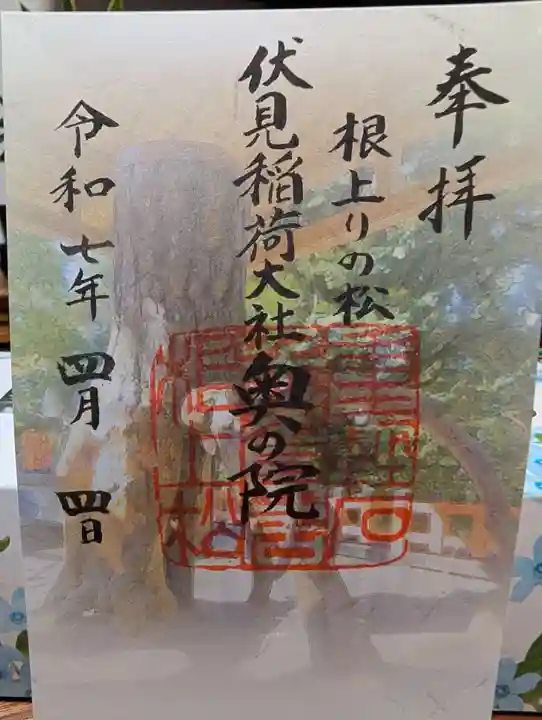 奉拝
根上りの松
伏見稲荷大社奥の院
令和七年四月四日